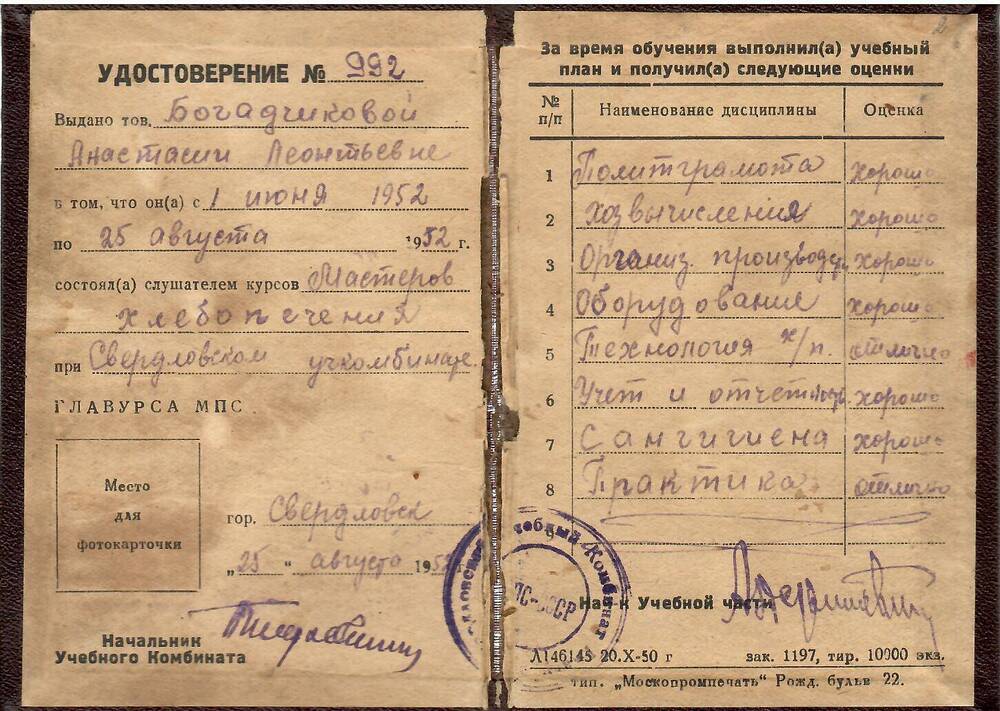 УДОСТОВЕРЕНИЕ № 992
Выдано тов. Богадчиковой
Анастасии Леонтьевне
в том, что он(а) с 1 июня 1952
по 25 августа 1952 г.
состоял(а) слушателем курсов Мастеров
хлебопечения
при Свердловском учкомбинате.
ГЛАВУРСА МПС
Место
для
фотокарточки
гор. Свердловск
„25“ августа 1952
Начальник
Учебного Комбината
2
За время обучения выполнил(а) учебный
план и получил(а) следующие оценки
№ п/п Наименование дисциплины Оценка
1 Политграмота хорошо
2 Хозвычисления хорошо
3 Организ. производ. хорошо
4 Оборудование хорошо
5 Технология х/п. отлично
6 Учет и отчетность хорошо
7 Сангигиена хорошо
8 Практика отлично
9
Учебный Комбинат
МПС-СССР
Нач-к Учебной части
Л146145 20.X-50 г зак. 1197, тир. 10000 экз.
тип. „Москопромпечать“ Рожд. бульв 22.